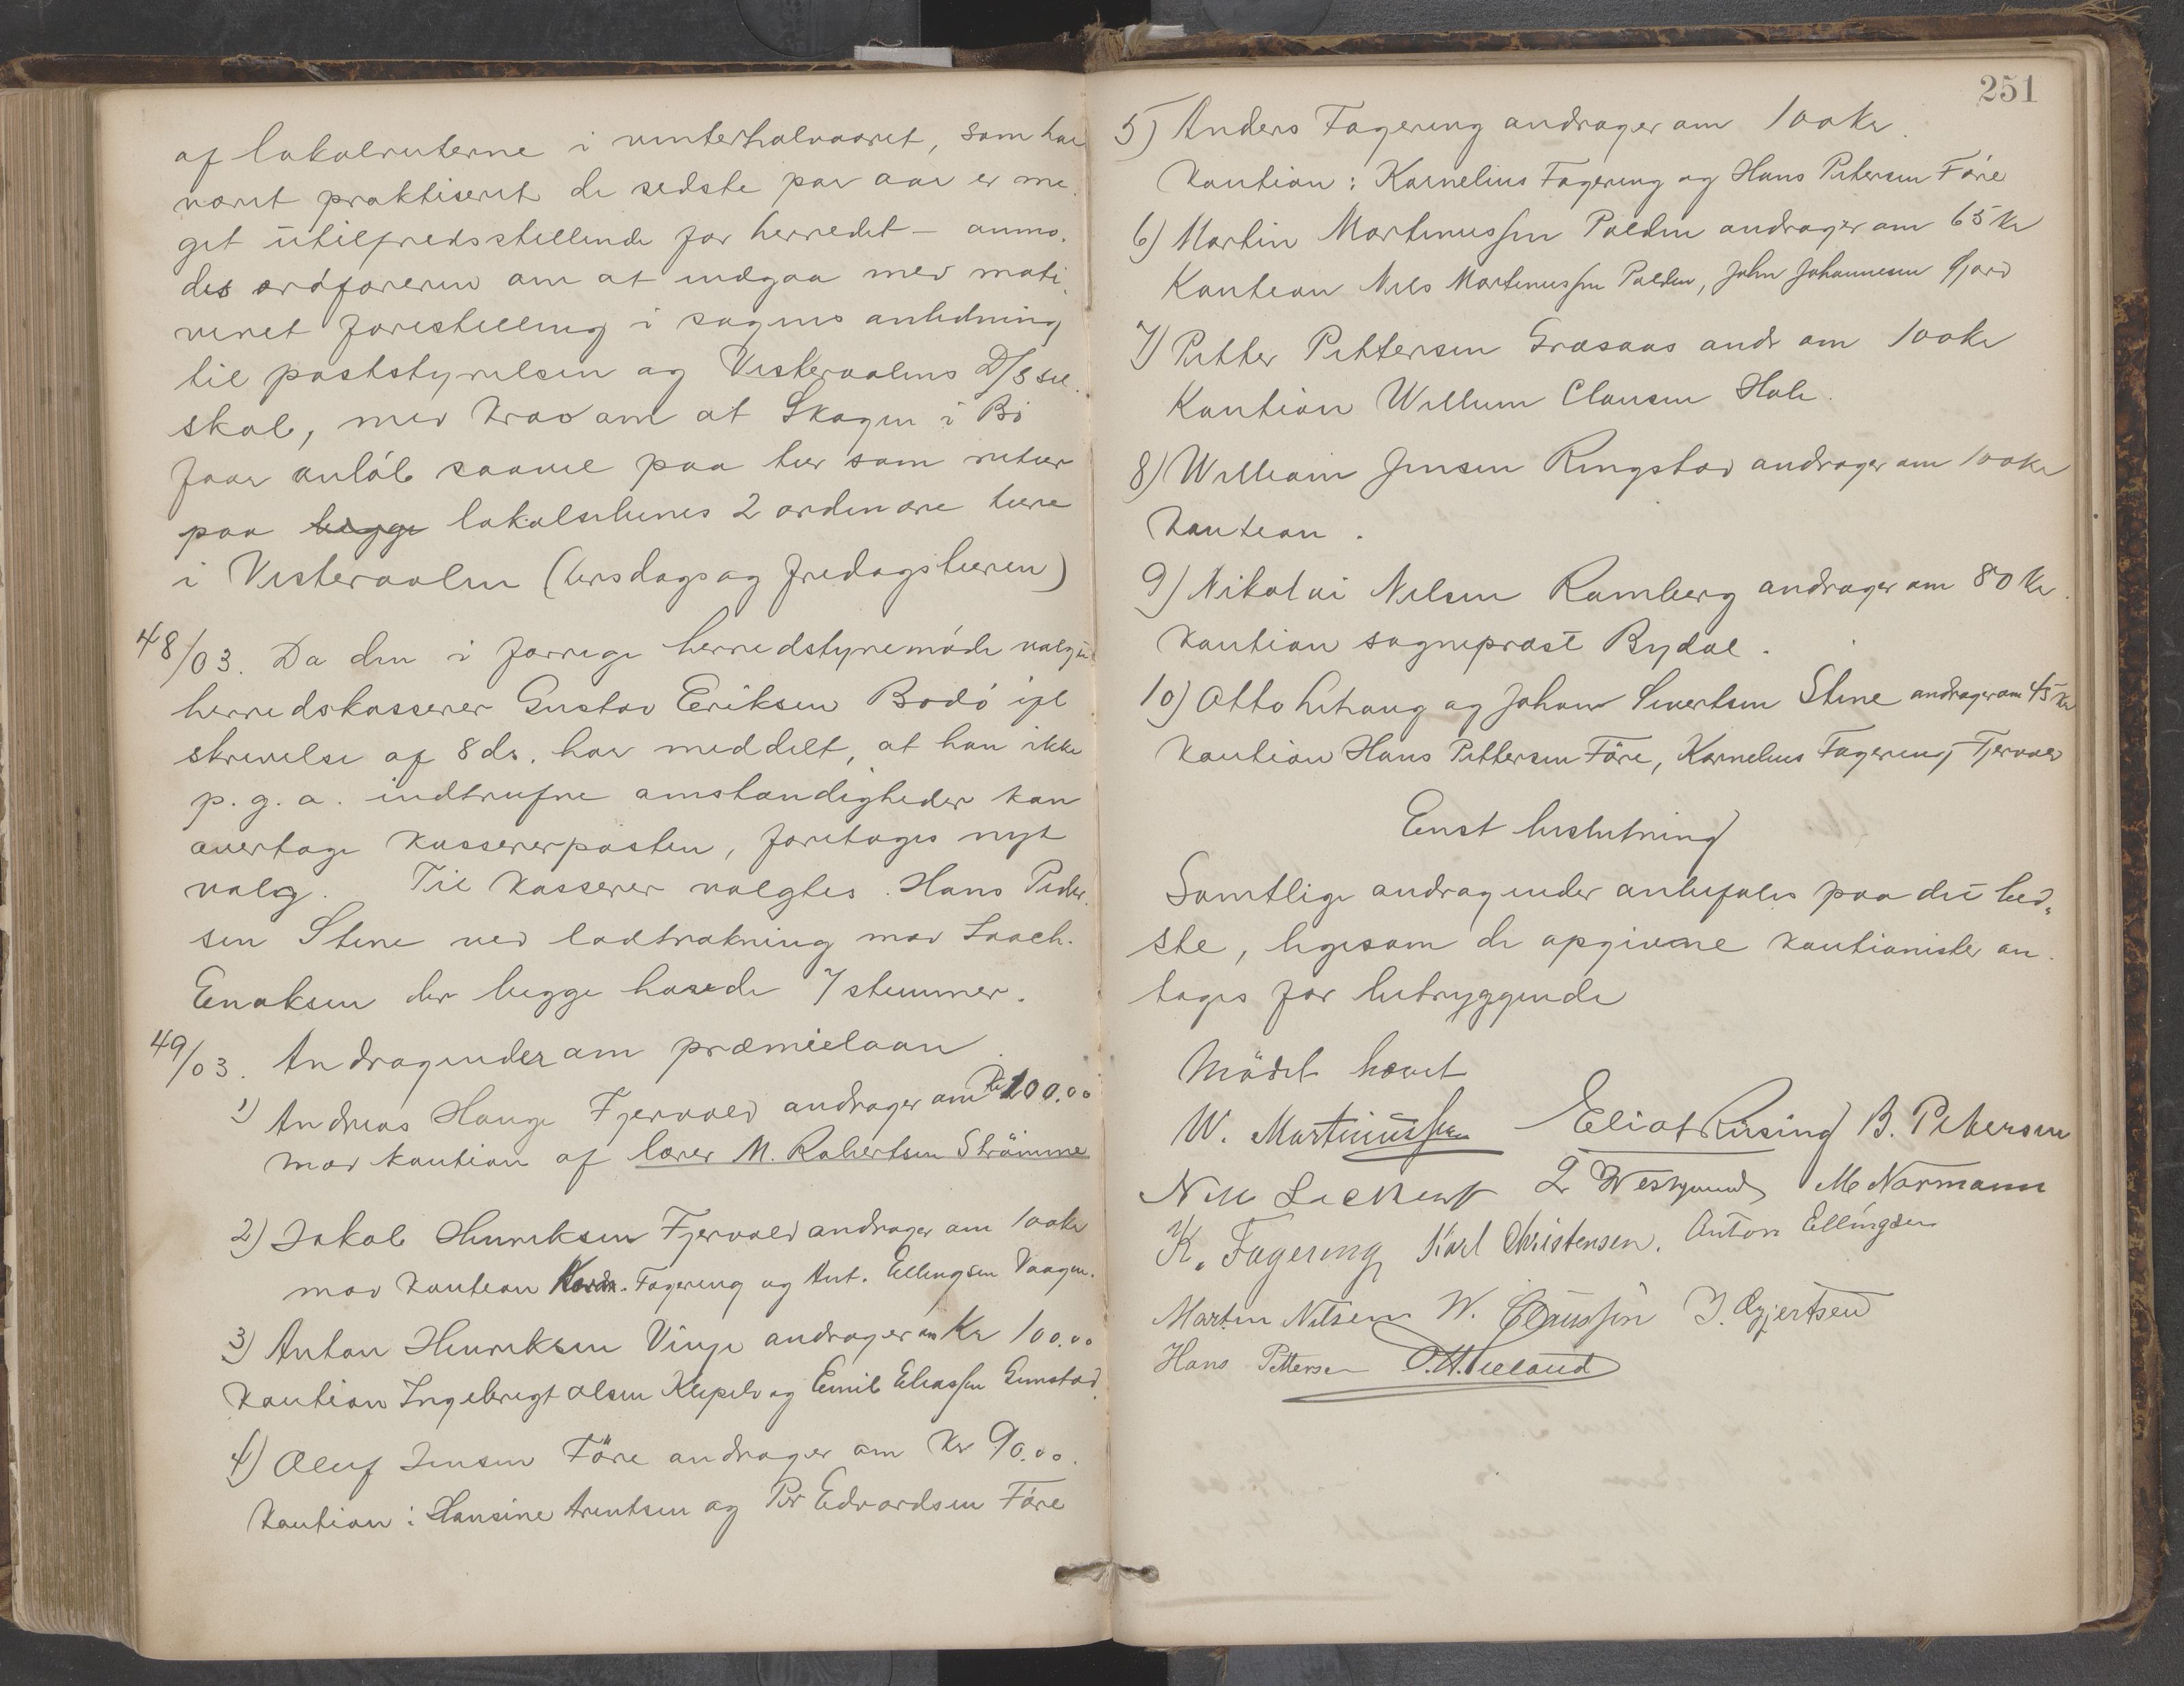 af lokalruterne i vinterhalvaaret, som har
været praktiseret de sedste par aar er me-
get utilfredsstillende for herredet - anmo-
des ordföreren om at indgaa med moti-
veret forestilling i sagens anledning
til poststyrelsen og Vesteraalens D/S sel-
skab, med krav om at Skagen i Bö
faar anlöb saavel paa tur som retur
paa begge lokalskibenes 2 ordinære ture
i Vesteraalen (tirsdags og fredagsturen)
48/03. Da den i forrige herredstyremöde valgte
herredskasserer Gustav Eriksen Bodö ifl
skrivelse af 8 ds. har meddelt, at han ikke
p. g. a. indtrufne omstændigheder kan
overtage kassererposten, foretages nyt
valg. Til kasserer valgtes Hans Peder-
sen Stene ved lodtrækning mod Zach.
Enoksen der begge havde 7 stemmer.
49/03. Andragender om præmielaan
1) Andreas Hauge Fjervold andrager om Kr 100.00
mod kaution af lærer M. Robertsen Strömme
2) Jakob Henriksen Fjervold andrager om 100 kr
mod kaution Korn. Fagereng og Ant. Ellingsen Vaagen.
3) Anton Henriksen Vinje andrager om Kr 100.00
Kaution Ingebrigt Olsen Klepelv og Emil Eliassen Gimstad
4) Oluf Jensen Före andrager om Kr 90.00.
Kaution: Hansine Arentsen og Per Edvardsen Före
251
5) Anders Fagereng andrager om 100 kr.
Kaution: Kornelius Fagereng og Hans Petersen Före
6) Martin Martinussen Pollen andrager om 65 Kr
Kaution Nils Martinussen Pollen, John Johannesen Gjærd
7) Petter Pettersen Græsaas andr om 100 kr
Kaution Willum Clausen Hole.
8) William Jensen Ringstad andrager om 100 kr
Kaution.
9) Nikolai Nilsen Ramberg andrager om 80 Kr.
Kaution sogneprest Rydal.
10) Otto Lihaug og Johan Sivertsen Stene andrager om 45 kr
Kaution Hans Pettersen Före, Kornelius Fagereng Fjervol
Enst beslutning
Samtlige andragender anbefales paa det bed-
ste, ligesom de opgivne kautionister an-
tages for betryggende
Mödet hævet
W. Martinussen Eliot Rusing B. Petersen
L Westgaard M Normann
K. Fagereng Karl Christensen. Anton Ellingsen
Martin Nilsen W. Claussen J. Gjertsen
Hans Pettersen